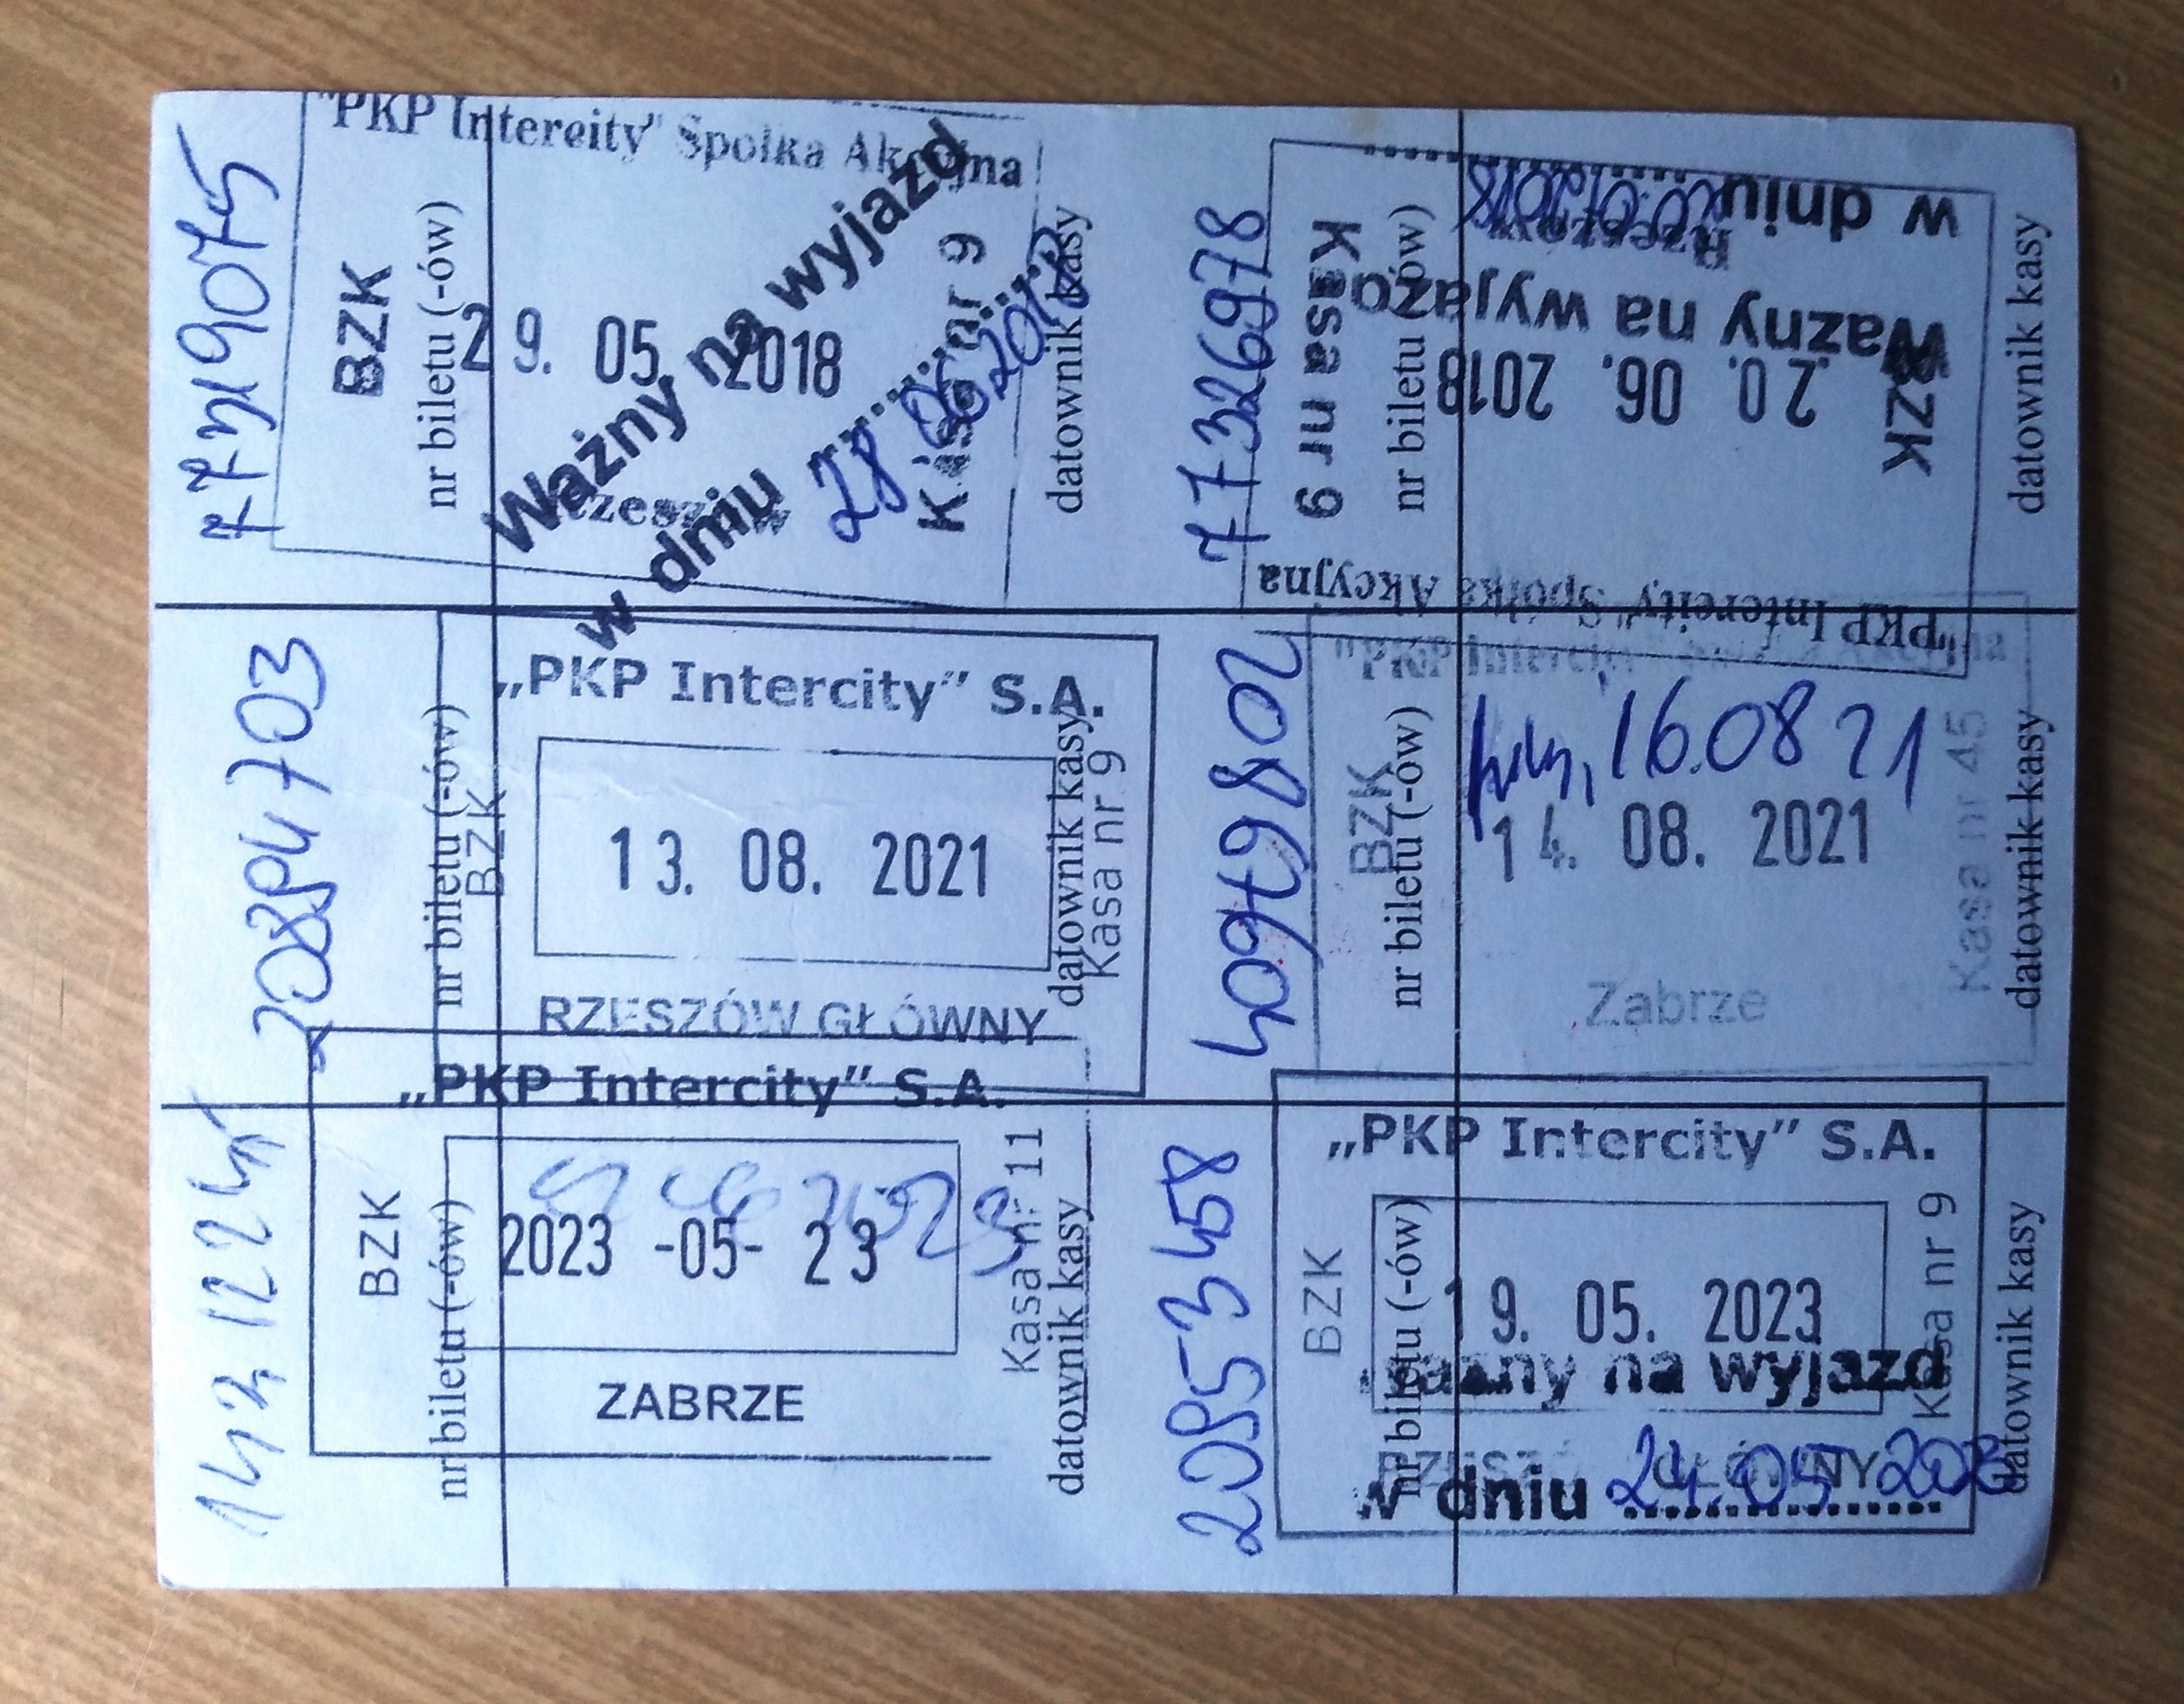 "PKP Intercity" Spółka Akcyjna
BZK
nr biletu (-ów)
29. 05. 2018
Ważny na wyjazd
w dniu 28 06 2018
Kasa nr 9
datownik kasy
"PKP Intercity" Spółka Akcyjna
BZK
nr biletu (-ów)
77326978
20. 06. 2018
Kasa nr 9
Rzeszów
Ważny na wyjazd
w dniu
datownik kasy
„PKP Intercity” S.A.
BZK
nr biletu (-ów)
20894703
13. 08. 2021
Kasa nr 9
datownik kasy
RZESZÓW GŁÓWNY
"PKP Intercity" Spółka Akcyjna
BZK
nr biletu (-ów)
16.08 21
14. 08. 2021
Kasa nr 45
datownik kasy
Zabrze
„PKP Intercity” S.A.
BZK
nr biletu (-ów)
2023 -05- 23
Kasa nr 11
datownik kasy
ZABRZE
„PKP Intercity” S.A.
BZK
nr biletu (-ów)
20953458
19. 05. 2023
Kasa nr 9
datownik kasy
RZESZÓW GŁÓWNY
Ważny na wyjazd
w dniu 24.05 2023